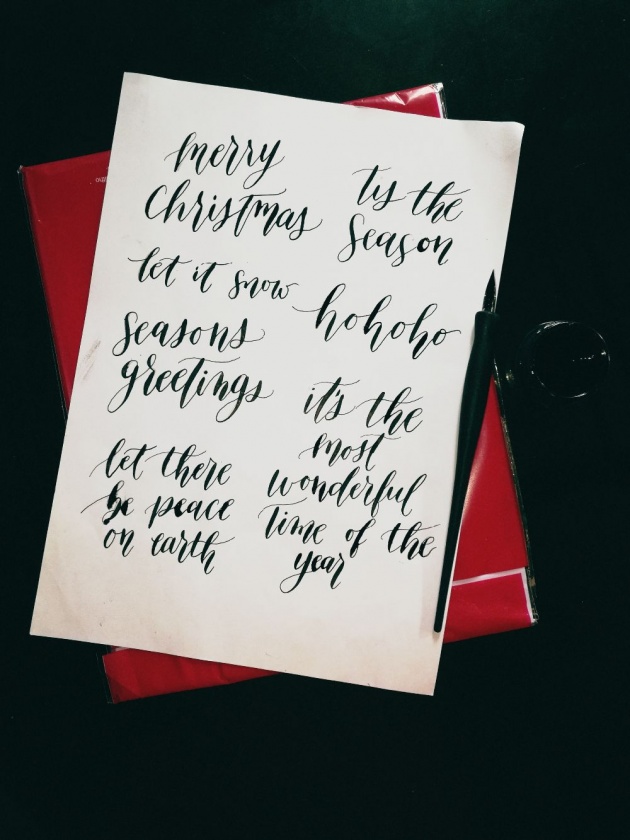 merry
Christmas
let it snow
seasons
greetings
let there
be peace
on earth
tis the
season
hohoho
it's the
most
wonderful
time of the
year